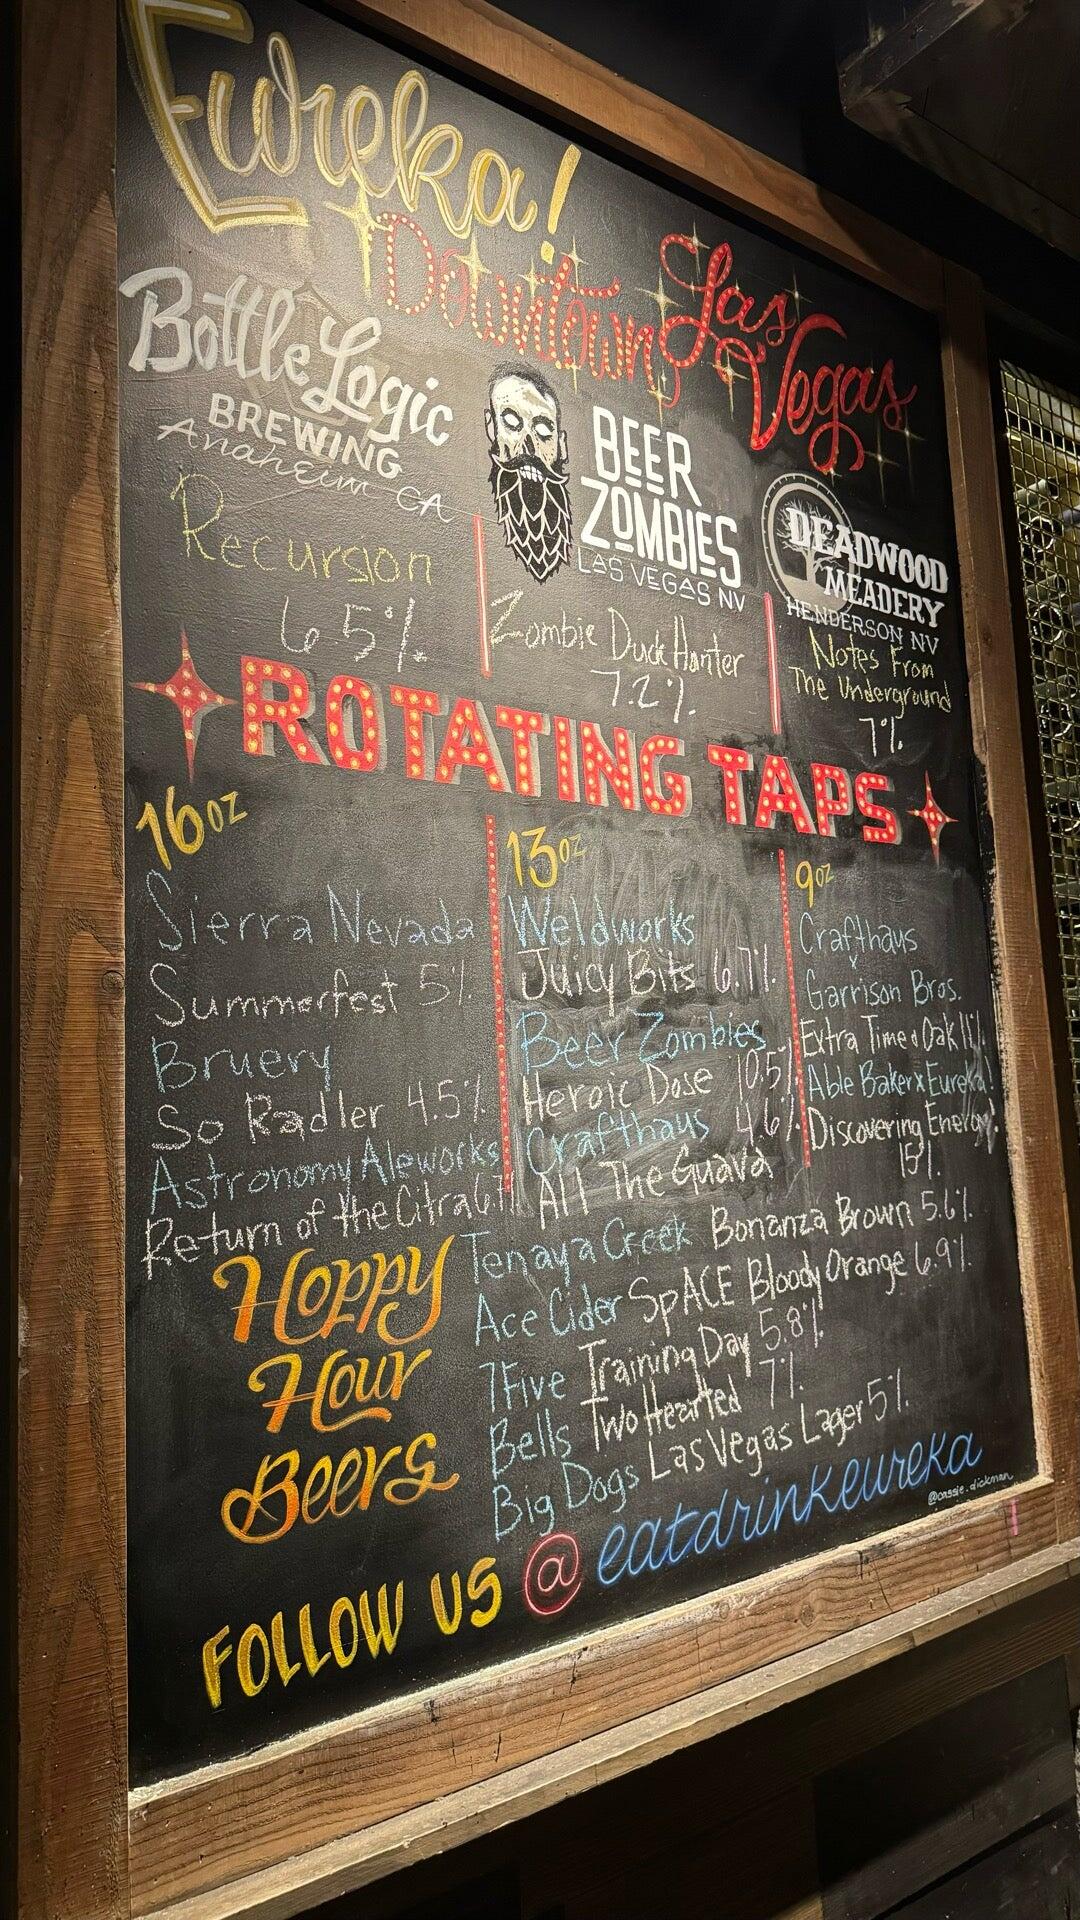 Eureka!
Downtown Las Vegas
Bottle Logic
BREWING
Anaheim CA
Recursion
6.5%
BEER
ZOMBIES
LAS VEGAS NV
Zombie Duck Hunter
7.2%
DEADWOOD
MEADERY
HENDERSON NV
Notes From
The Underground
7%
ROTATING TAPS
16oz
Sierra Nevada
Summerfest 5%
Bruery
So Radler 4.5%
Astronomy Aleworks
Return of the Citra 6.7%
13oz
Weldworks
Juicy Bits 6.7%
Beer Zombies
Heroic Dose 10.5%
Crafthaus 4.6%
All The Guava
9oz
Crafthaus
Garrison Bros.
Extra Time & Oak 11%
Able Baker x Eureka!
Discovering Energy!
15%
Hoppy
Hour
Beers
Tenaya Creek Bonanza Brown 5.6%
Ace Cider SpACE Bloody Orange 6.9%
7Five Training Day 5.8%
Bells Two Hearted 7%
Big Dogs Las Vegas Lager 5%
FOLLOW US @eatdrinkeureka
@cassie.dickman